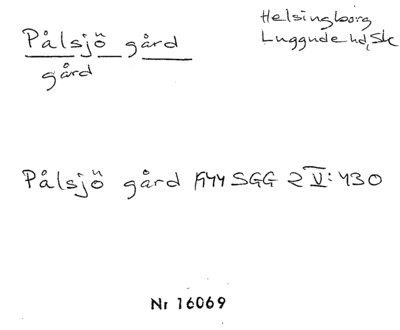 Pålsjö gård
gård
Helsingborg
Luggude hd, Sk
Pålsjö gård 1944 SGG 2 V: 430
Nr 16069